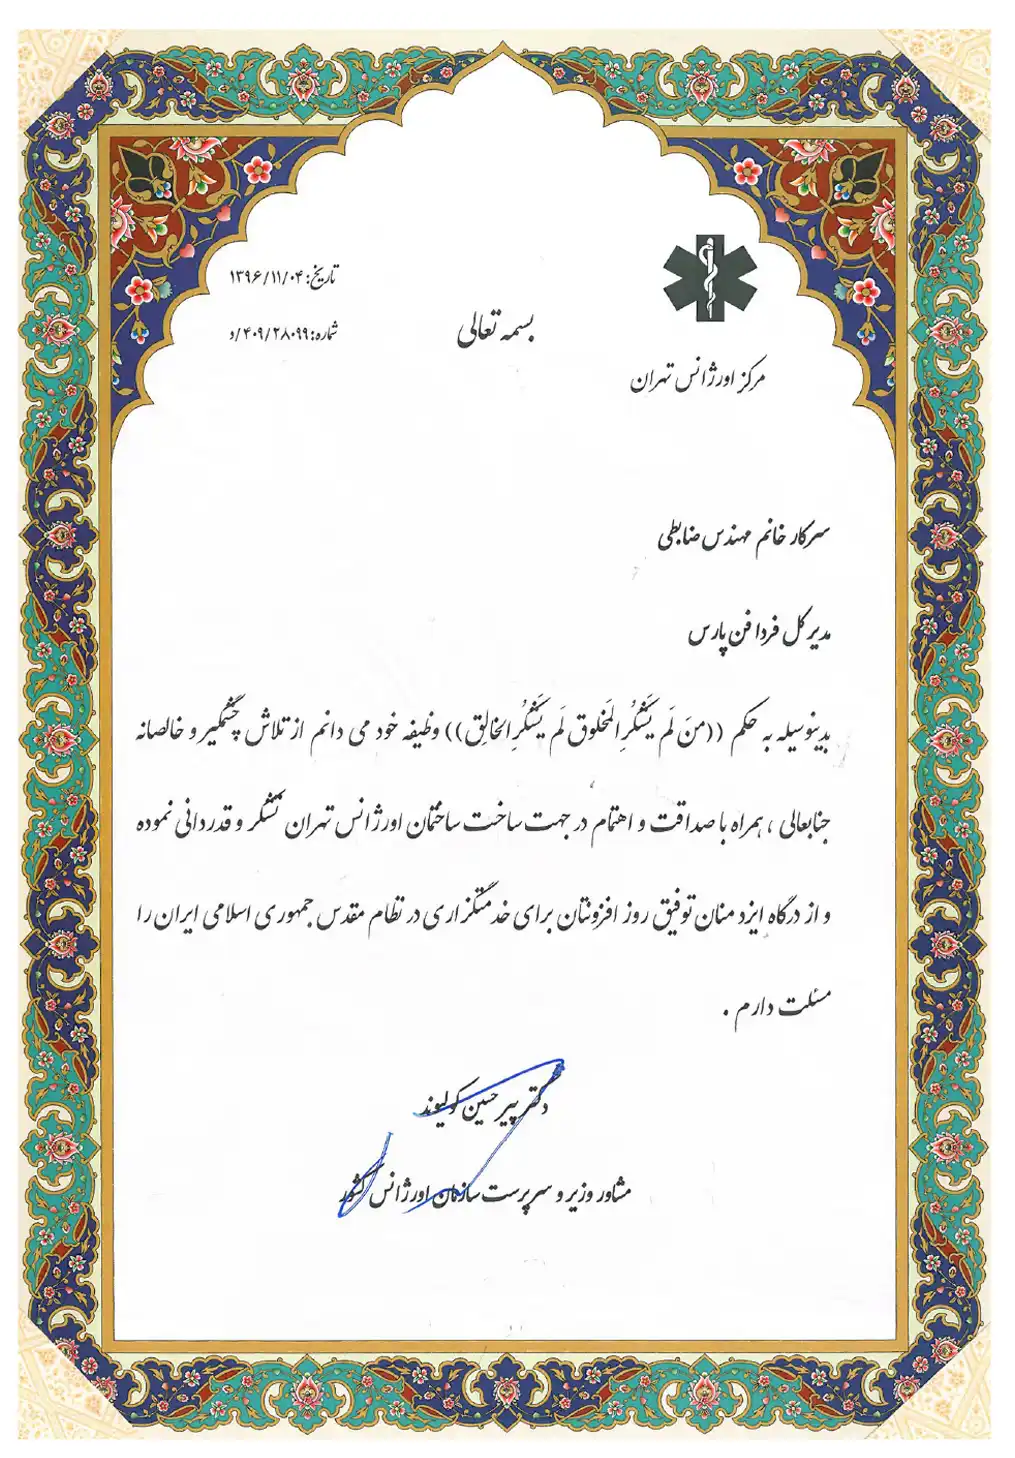 تاریخ: ۱۳۹۶/۱۱/۰۴
شماره: ۴۰۹/۲۸۰۹۹/د
بسمه تعالی
مرکز اورژانس تهران
سرکار خانم مهندس ضابطی
مدیر کل فردا فن پارس
بدینوسیله به حکم ((مَن لَم یَشکُرِ المَخلوق لَم یَشکُرِ الخالِق)) وظیفه خود می دانم از تلاش چشمگیر و خالصانه
جنابعالی ، همراه با صداقت و اهتمام در جهت ساخت ساختمان اورژانس تهران تشکر و قدردانی نموده
و از درگاه ایزد منان توفیق روز افزونتان برای خدمتگزاری در نظام مقدس جمهوری اسلامی ایران را
مسئلت دارم .
دکتر پیر حسین کولیوند
مشاور وزیر و سرپرست سازمان اورژانس کشور